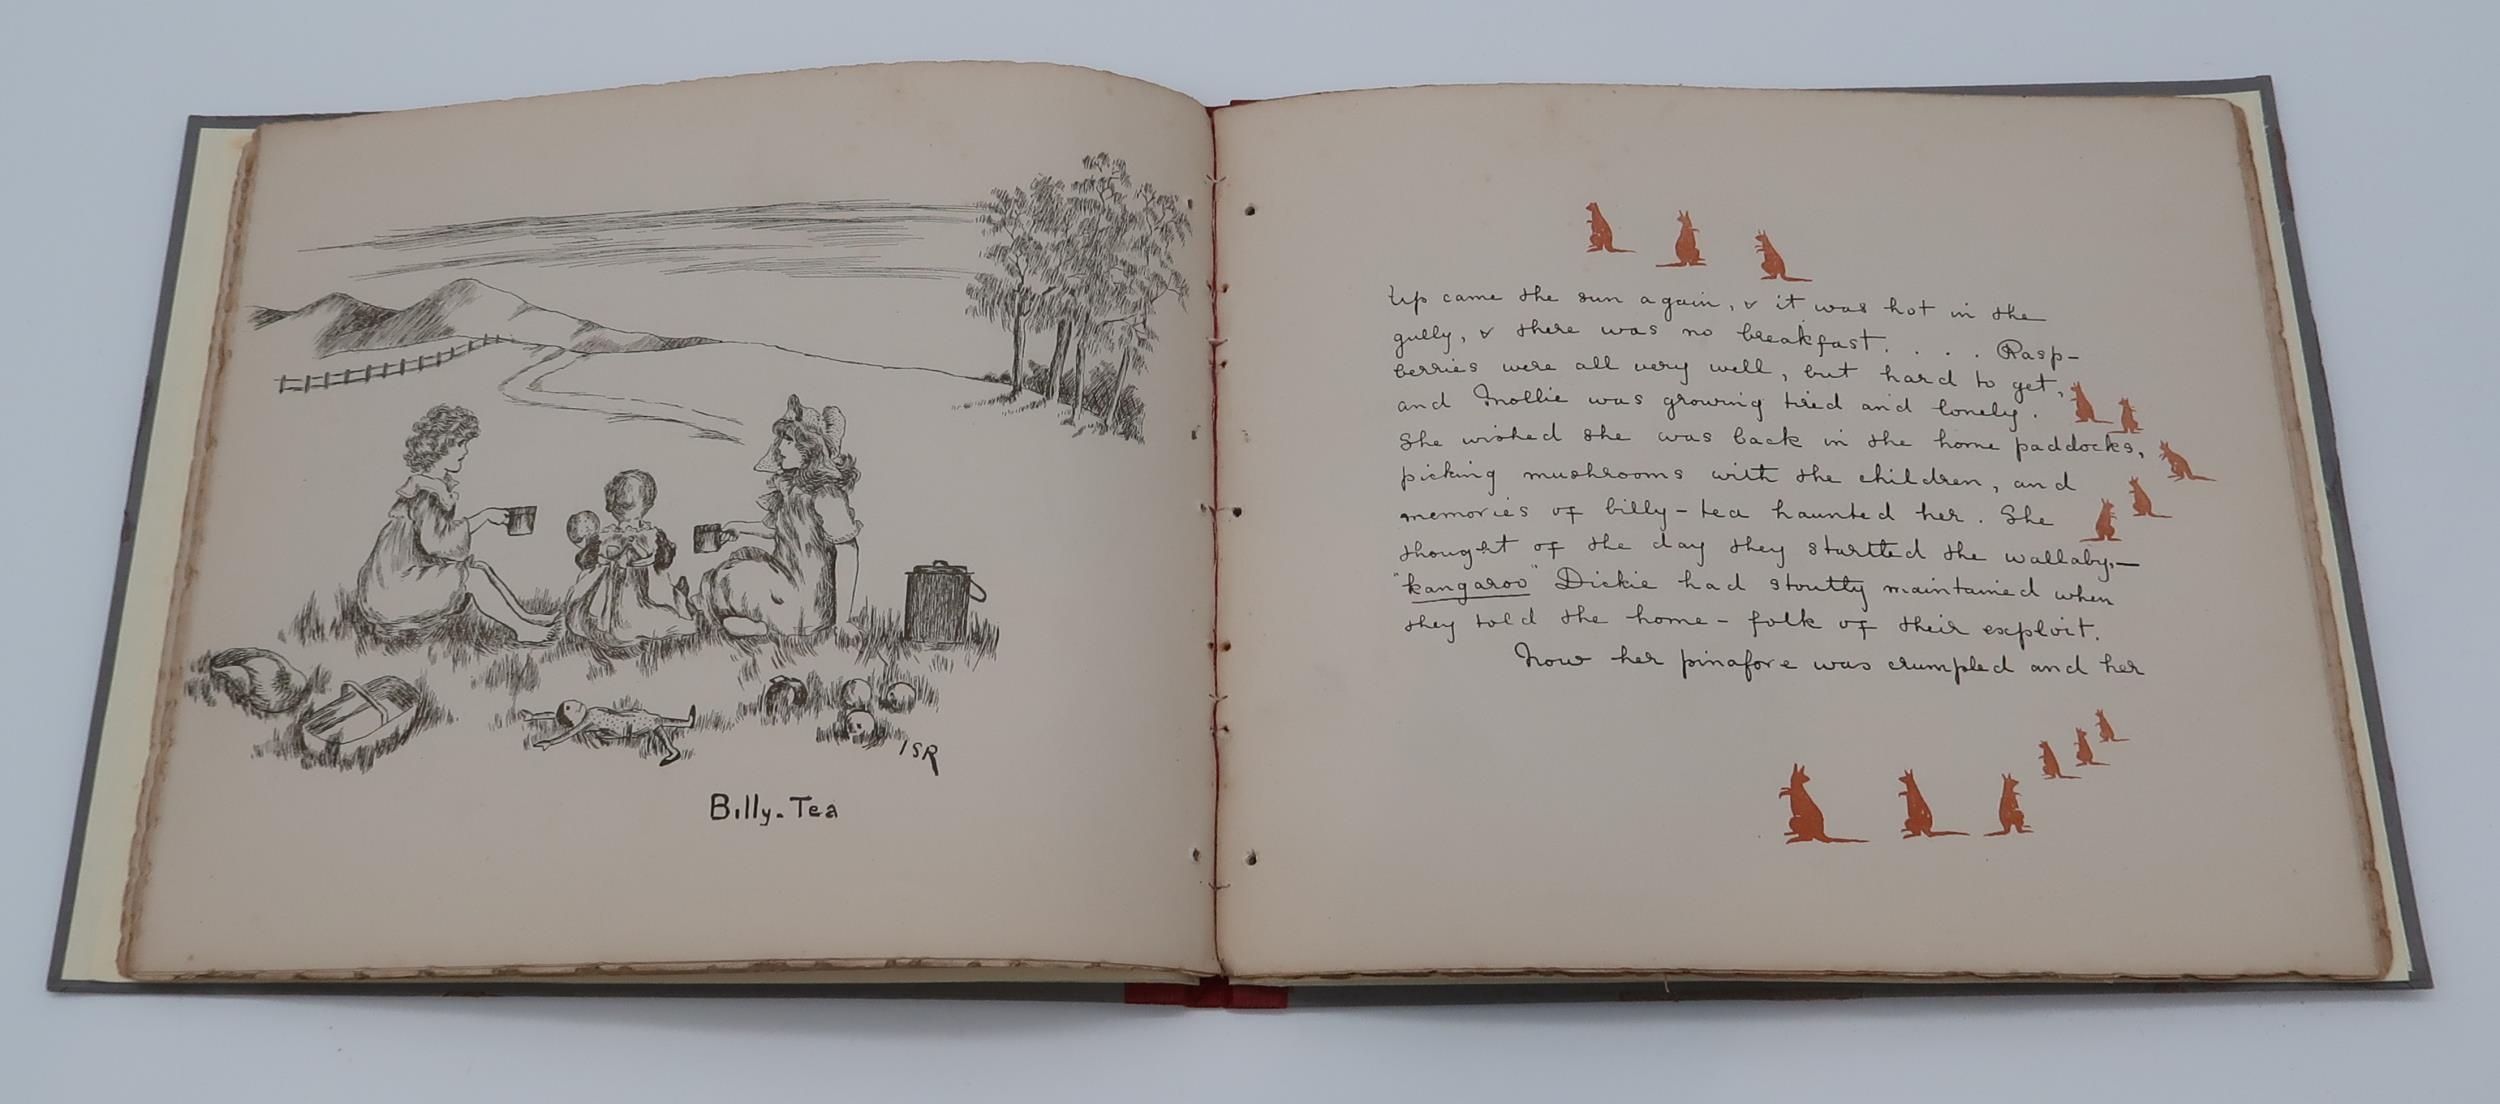 ISR
Billy-Tea
Up came the sun again, & it was hot in the
gully, & there was no breakfast. . . . Rasp-
berries were all very well, but hard to get,
and Mollie was growing tired and lonely.
She wished she was back in the home paddocks,
picking mushrooms with the children, and
memories of billy-tea haunted her. She
thought of the day they startled the wallaby,—
"kangaroo" Dickie had stoutly maintained when
they told the home-folk of their exploit.
Now her pinafore was crumpled and her